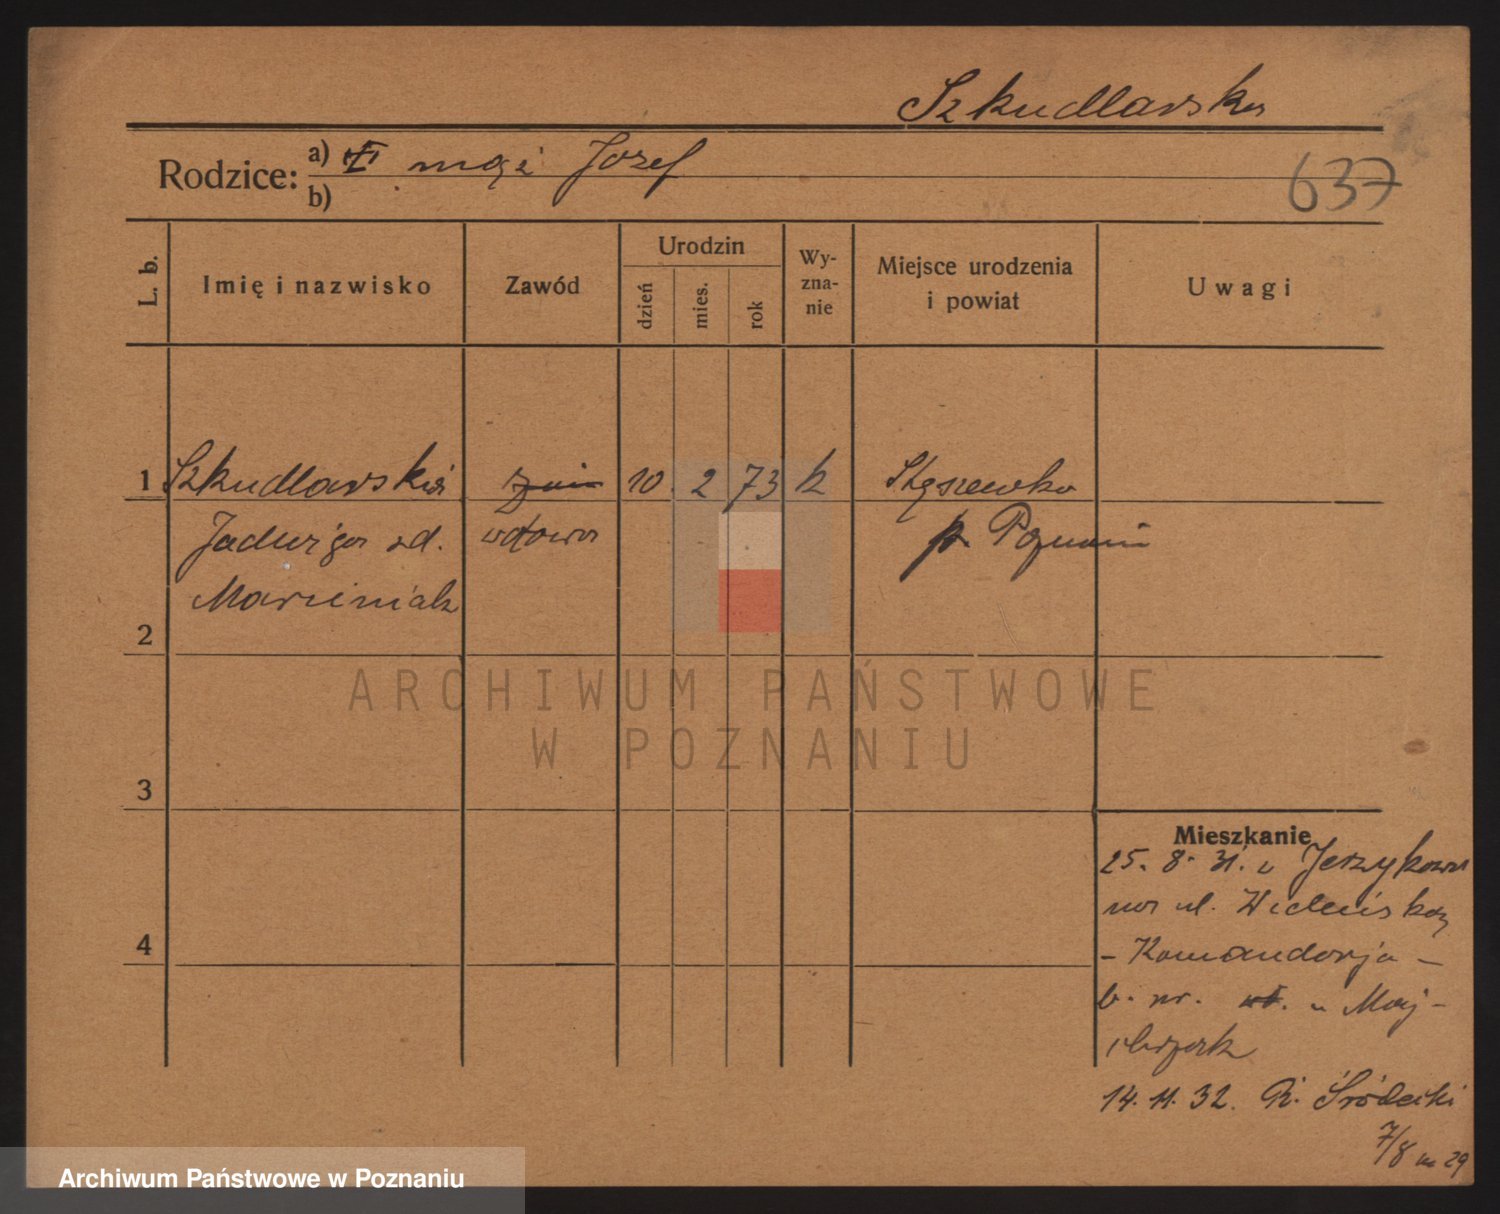 Szkudlarska
Rodzice: a) mąż Józef
b)
637
L. b. Imię i nazwisko Zawód Urodzin dzień mies. rok Wy-zna-nie Miejsce urodzenia i powiat Uwagi
1 Szkudlarska 10 2 73 k Stęszewko
Jadwiga zd. wdowa p. Poznań
Marciniak
2
3
4
Mieszkanie
25. 8. 31. z Jerzykowa
na ul. Wileńską
- Komandorja -
b. nr. u Maj-
chrzak
14. 11. 32. R. Śródecki
7/8 m 29
ARCHIWUM PAŃSTWOWE
W POZNANIU
Archiwum Państwowe w Poznaniu